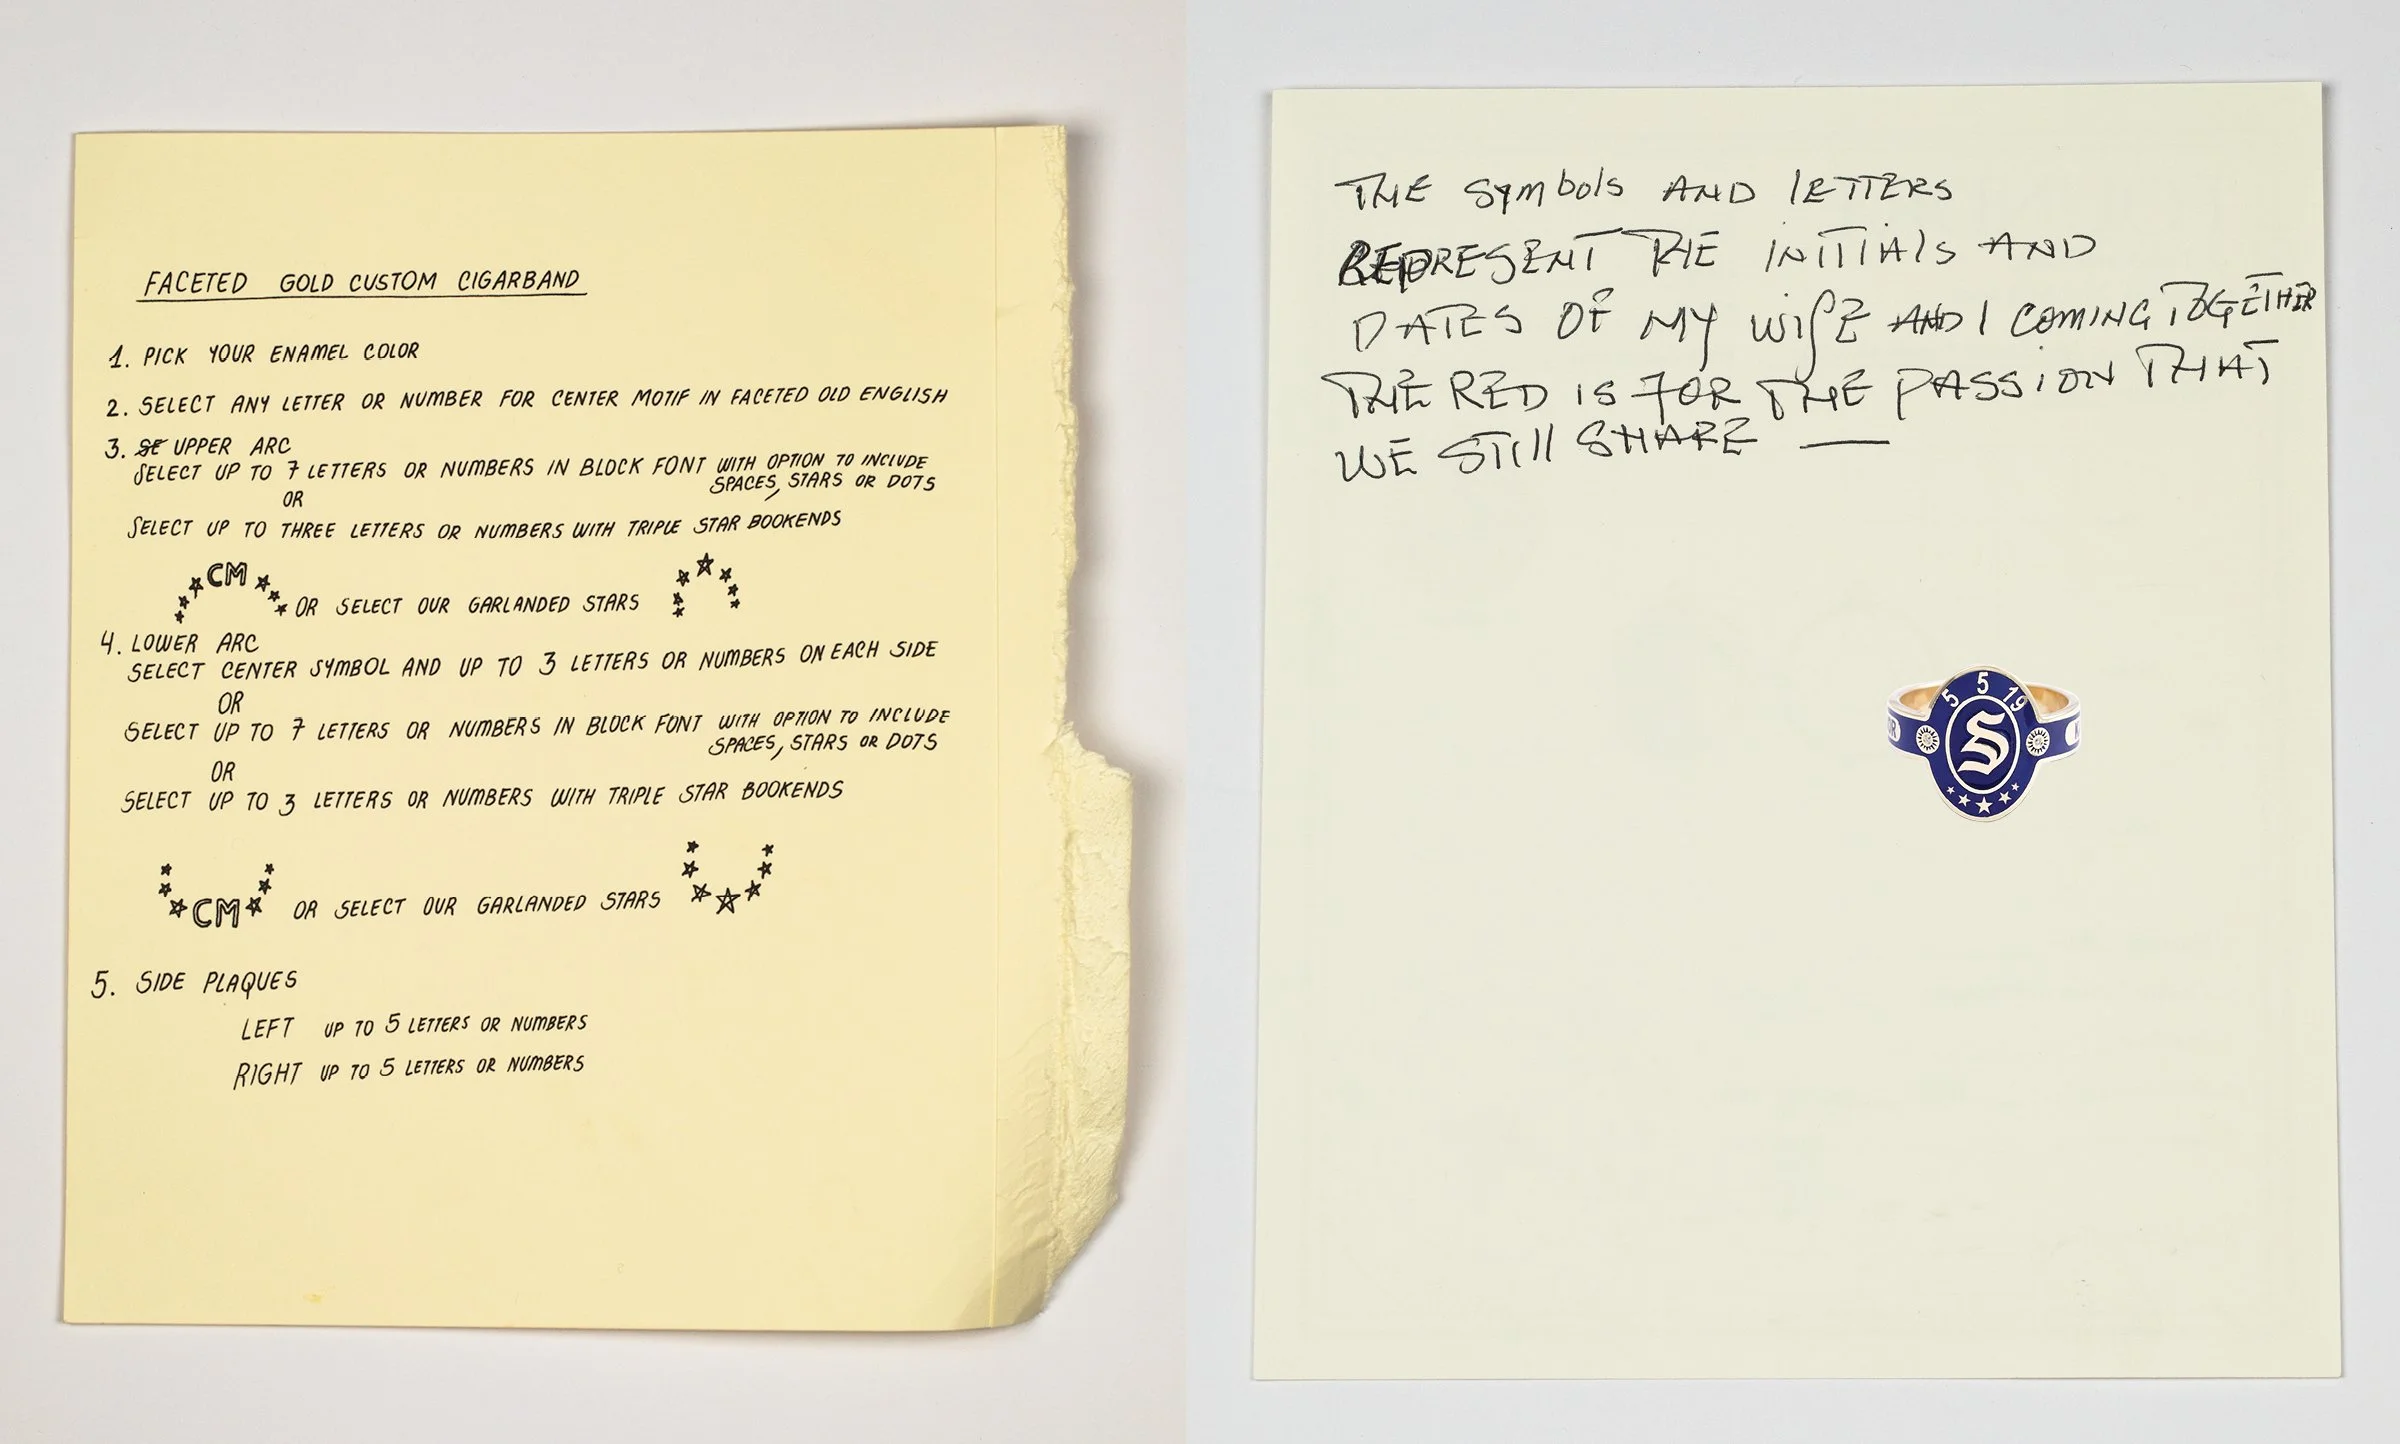 FACETED GOLD CUSTOM CIGARBAND
1. PICK YOUR ENAMEL COLOR
2. SELECT ANY LETTER OR NUMBER FOR CENTER MOTIF IN FACETED OLD ENGLISH
3. SE UPPER ARC
SELECT UP TO 7 LETTERS OR NUMBERS IN BLOCK FONT WITH OPTION TO INCLUDE
SPACES, STARS OR DOTS
OR
SELECT UP TO THREE LETTERS OR NUMBERS WITH TRIPLE STAR BOOKENDS
CM
OR SELECT OUR GARLANDED STARS
4. LOWER ARC
SELECT CENTER SYMBOL AND UP TO 3 LETTERS OR NUMBERS ON EACH SIDE
OR
SELECT UP TO 7 LETTERS OR NUMBERS IN BLOCK FONT WITH OPTION TO INCLUDE
SPACES, STARS OR DOTS
OR
SELECT UP TO 3 LETTERS OR NUMBERS WITH TRIPLE STAR BOOKENDS
CM OR SELECT OUR GARLANDED STARS
5. SIDE PLAQUES
LEFT UP TO 5 LETTERS OR NUMBERS
RIGHT UP TO 5 LETTERS OR NUMBERS
THE SYMbols AND lETTERS
REPRESENT THE INITIAlS AND
DATES OF MY WIFE AND I COMING TOGETHER
THE RED IS FOR THE PASSION THAT
WE STIll SHARE —
5 5 19
S